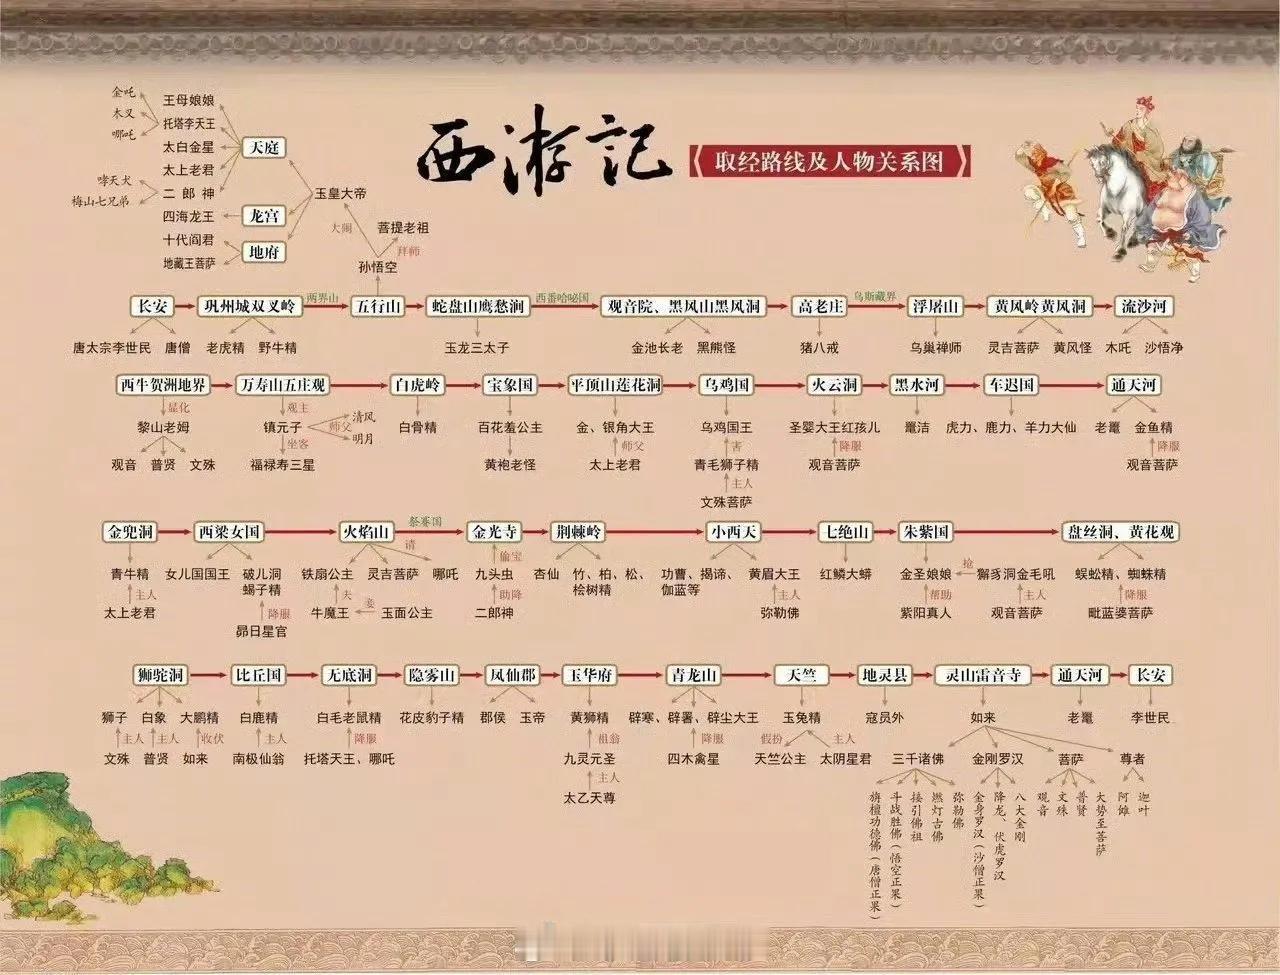 西游记
取经路线及人物关系图
金吒
木叉
哪吒
王母娘娘
托塔李天王
太白金星
太上老君
二郎神
哮天犬
梅山七兄弟
四海龙王
十代阎君
地藏王菩萨
天庭
龙宫
地府
玉皇大帝
大闹
菩提老祖
拜师
孙悟空
长安 巩州城双叉岭 两界山 五行山 蛇盘山鹰愁涧 西番哈咇国 观音院、黑风山黑风洞 高老庄 乌斯藏界 浮屠山 黄风岭黄风洞 流沙河
唐太宗李世民 唐僧 老虎精 野牛精 玉龙三太子 金池长老 黑熊怪 猪八戒 乌巢禅师 灵吉菩萨 黄风怪 木吒 沙悟净
西牛贺洲地界 万寿山五庄观 白虎岭 宝象国 平顶山莲花洞 乌鸡国 火云洞 黑水河 车迟国 通天河
显化 观主 清风
黎山老姆 镇元子 师父 白骨精 百花羞公主 金、银角大王 乌鸡国王 圣婴大王红孩儿 鼍洁 虎力、鹿力、羊力大仙 老鼋 金鱼精
明月
坐客 师父 害 降服 降服
观音 普贤 文殊 福禄寿三星 黄袍老怪 太上老君 青毛狮子精 观音菩萨 观音菩萨
主人
文殊菩萨
金兜洞 西梁女国 火焰山 祭赛国 金光寺 荆棘岭 小西天 七绝山 朱紫国 盘丝洞、黄花观
请 偷宝
青牛精 女儿国国王 破儿洞 铁扇公主 灵吉菩萨 哪吒 九头虫 杏仙 竹、柏、松、 功曹、揭谛、 黄眉大王 红鳞大蟒 金圣娘娘 抢 獬豸洞金毛吼 蜈蚣精、蜘蛛精
蝎子精 桧树精 伽蓝等
主人 降服 夫 妾 助降 主人 帮助 主人 降服
太上老君 牛魔王 玉面公主 二郎神 弥勒佛 紫阳真人 观音菩萨 毗蓝婆菩萨
昴日星官
狮驼洞 比丘国 无底洞 隐雾山 凤仙郡 玉华府 青龙山 天竺 地灵县 灵山雷音寺 通天河 长安
狮子 白象 大鹏精 白鹿精 白毛老鼠精 花皮豹子精 郡侯 玉帝 黄狮精 辟寒、辟署、辟尘大王 玉兔精 寇员外 如来 老鼋 李世民
主人 主人 收伏 主人 降服 祖翁 降服 假扮 主人
文殊 普贤 如来 南极仙翁 托塔天王、哪吒 九灵元圣 四木禽星 天竺公主 太阴星君 三千诸佛 金刚罗汉 菩萨 尊者
主人
太乙天尊
旃檀功德佛(唐僧正果)
斗战胜佛(悟空正果)
接引佛祖
燃灯古佛
弥勒佛
金身罗汉(沙僧正果)
降龙、伏虎罗汉
八大金刚
观音
文殊
普贤
大势至菩萨
阿傩
迦叶